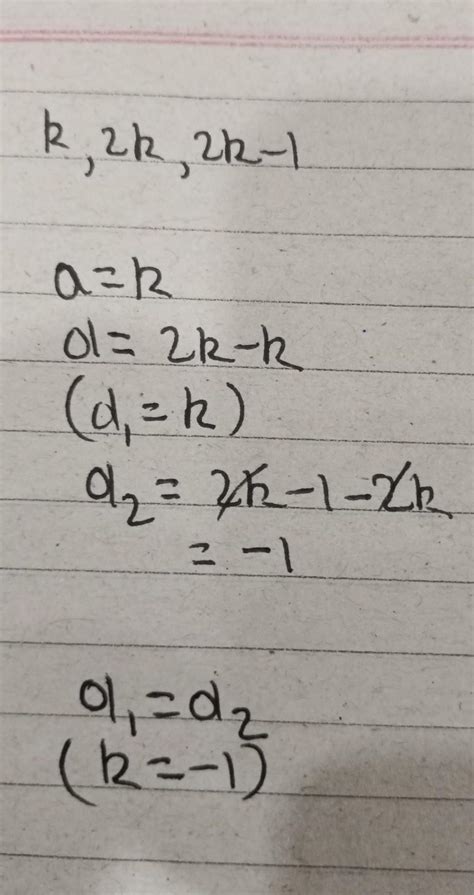 k, 2k, 2k-1
a=k
d= 2k-k
(d₁ = k)
d₂ = 2k-1-2k
= -1
d₁=d₂
(k=-1)